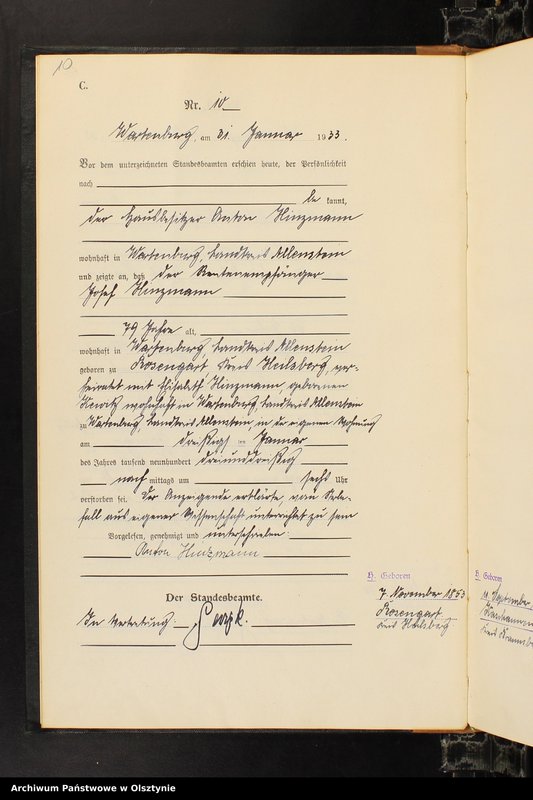 10
C.
Nr. 10
Wartenburg, am 31. Januar 1933.
Vor dem unterzeichneten Standesbeamten erschien heute, der Persönlichkeit
nach
be kannt,
der Hausbesitzer Anton Hinzmann
wohnhaft in Wartenburg, Landkreis Allenstein
und zeigte an, daß der Rentenempfänger
Josef Hinzmann
79 Jahre alt,
wohnhaft in Wartenburg, Landkreis Allenstein
geboren zu Rosengart, Kreis Heilsberg, ver-
heiratet mit Elisabeth Hinzmann, geborenen
wohnhaft in Wartenburg, Landkreis Allenstein
zu Wartenburg, Landkreis Allenstein, in der eigenen Wohnung
am dreißigsten Januar
des Jahres tausend neunhundert dreiunddreißig
nach mittags um sechs Uhr
verstorben sei. Der Anzeigende erklärte, vom Sterbe-
fall aus eigener Wissenschaft unterrichtet zu sein
Vorgelesen, genehmigt und unterschrieben
Anton Hinzmann
Der Standesbeamte.
In Vertretung.
H. Geboren
7. November 1853
Rosengart
Kreis Heilsberg
H. Geboren
September
Kreis
Archiwum Państwowe w Olsztynie